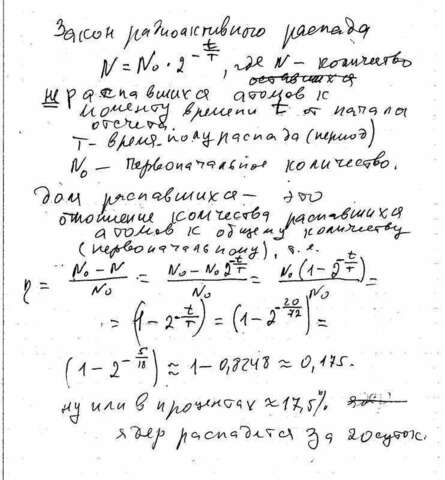 Закон радиоактивного распада
N = N₀ · 2^(-t/T), где N - количество
оставшихся
не распавшихся атомов к
моменту времени t от начала
отсчета
T - время полураспада (период)
N₀ - первоначальное количество.
Доля распавшихся - это
отношение количества распавшихся
атомов к общему количеству
(первоначальному), т.е.
η = (N₀ - N)/N₀ = (N₀ - N₀2^(-t/T))/N₀ = N₀(1 - 2^(-t/T))/N₀ =
= (1 - 2^(-t/T)) = (1 - 2^(-20/72)) =
(1 - 2^(-5/18)) ≈ 1 - 0,8248 ≈ 0,175.
ну или в процентах ≈ 17,5%.
ядер распадется за 20 суток.